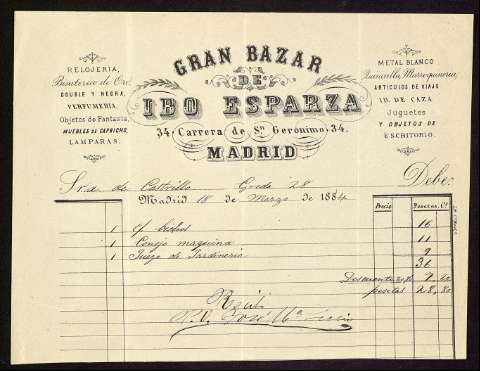 GRAN BAZAR
DE
IBO ESPARZA
34, Carrera de Sn. Gerónimo, 34.
MADRID
RELOJERIA,
Bisuteria de Oro
DOUBLÉ Y NEGRA,
PERFUMERIA
Objetos de Fantasía,
MUEBLES DE CAPRICHO,
LAMPARAS.
METAL BLANCO
Quincalla, Marroquineria,
ARTICULOS DE VIAJE
ID. DE CAZA
Juguetes
Y OBJETOS DE
ESCRITORIO.
Sra de Castrillo Greda 28 Debe:
Madrid 18 de Marzo de 1884
Precio Pesetas. Cs.
1 16
1 Conejo maquina 11
1 Juego de Jardineria 9
36
Descuento 20% 7 20
pesetas 28,80
Recibí
P.O. José Ma